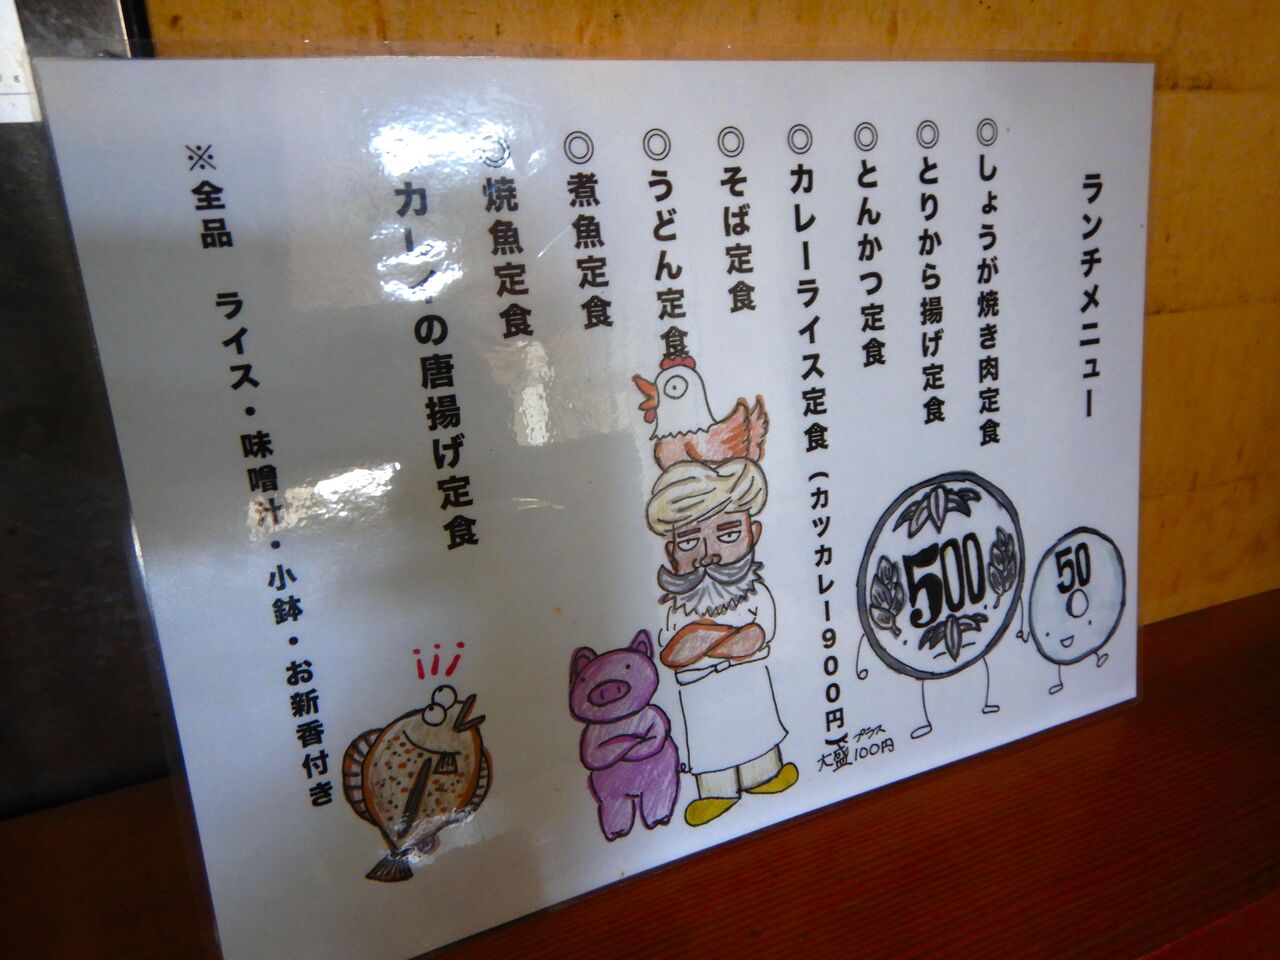 ランチメニュー
◎しょうが焼き肉定食
◎とりから揚げ定食
◎とんかつ定食
◎カレーライス定食(カツカレー900円)
プラス
大盛100円
◎そば定食
◎うどん定食
◎煮魚定食
◎焼魚定食
カレイの唐揚げ定食
※全品 ライス・味噌汁・小鉢・お新香付き
500
50